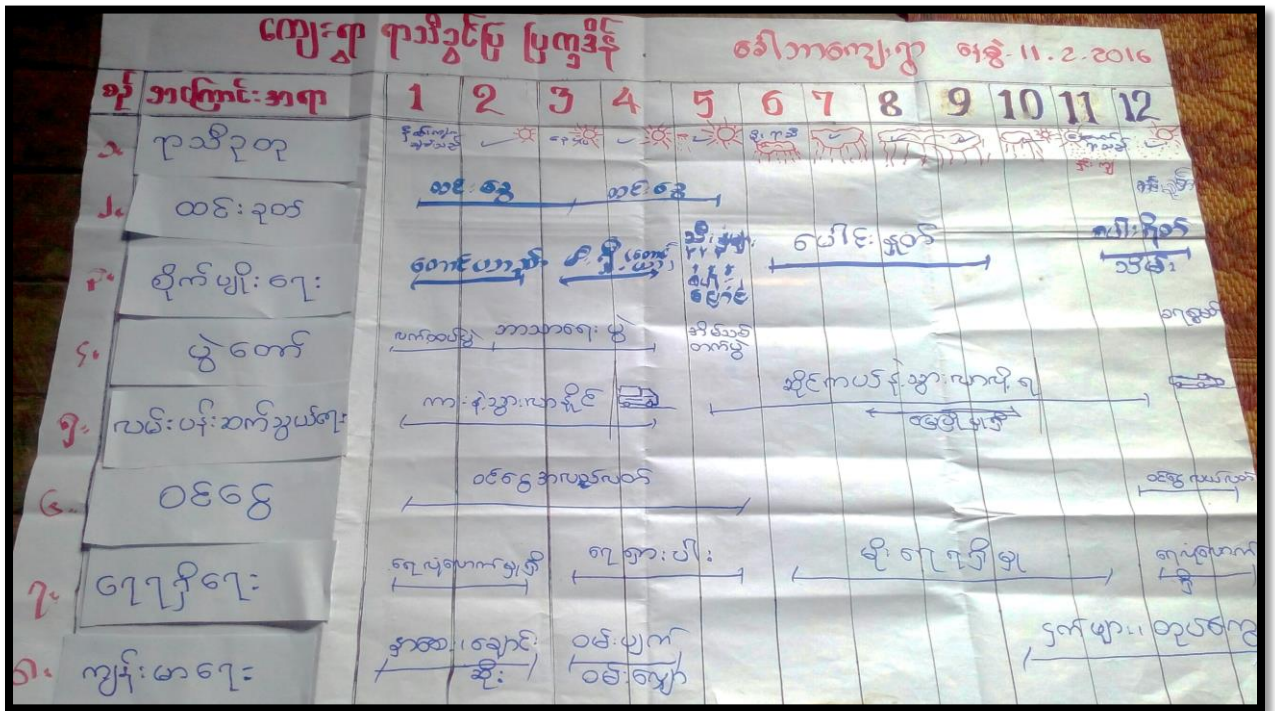 ကျေးရွာ ရာသီခွင်ပြ ပြက္ခဒိန် ဒေါဘာကျေးရွာ နေ့စွဲ-11.2.2016
စဉ် အကြောင်းအရာ 1 2 3 4 5 6 7 8 9 10 11 12
၁. ရာသီဥတု
၂. ထင်းခုတ် ထင်းခွေ ထင်းခွေ
၃. စိုက်ပျိုးရေး တောင်ယာခုတ် မီးရှို့(တောင်ယာ) ပေါင်းနှုတ် စပါးရိတ်
သိမ်း
၄. ပွဲတော် လက်ထပ်ပွဲ ဘာသာရေးပွဲ အိမ်သစ်
တက်ပွဲ ခရစ္စမတ်
၅. လမ်းပန်းဆက်သွယ်ရေး ကားနဲ့သွားလာနိုင် ဆိုင်ကယ်နဲ့သွားလာလို့ရ
မြေပြိုမှုရှိ
၆. ဝင်ငွေ ဝင်ငွေအလည်လတ် ဝင်ငွေလယ်လတ်
၇. ရေရရှိရေး ရေလုံလောက်မှုရှိ ရေရှားပါး မိုးရေရရှိမှု ရေလုံလောက်
ရှိ
၈. ကျန်းမာရေး နှာစေး၊ ချောင်း
ဆိုး ဝမ်းပျက်
ဝမ်းလျှော ငှက်ဖျား၊ တုပ်ကွေး